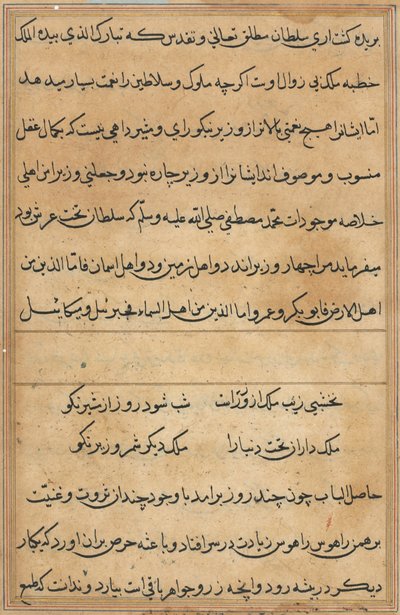 بریده کشت اری سلطان مطلق تعالی و تقدس که تبارک الذی بیده الملک
خطبه ملک بی زوال اوست اکرچه ملوک و سلاطین را نعمت بسیار میدهد
اما ایشانرا هیچ نعمتی بالاتر از وزیر نیکورای و مشیر داهی نیست که بکمال عقل
منسوب و موصوف اند ایشانرا از وزیر چاره نبود وجعلنی وزیرا من اهلی
خلاصه موجودات محمد مصطفی صلی الله علیه وسلم که سلطان تخت عرش بود
میفرماید مرا چهار وزیراند دو اهل زمین و دو اهل اسمان فاما الذین من
اهل الارض فابوبکر و عمر و اما الذین من اهل السماء فجبرئیل و میکائیل
نخشبی زیب ملک از وزراست شب شود روز از مشیر نکو
ملک داران تخت دنیا را ملک دیگر شمر وزیر نکو
حاصل الباب چون چند روز برامد با وجود چندان ثروت و غنیت
برهمن را هوس زیادت در سر افتاد و باعثه حرص بران اورد که یکبار
دیگر در بیشه رود و انچه زر و جواهر باقی است بیارد و ندانست که طمع